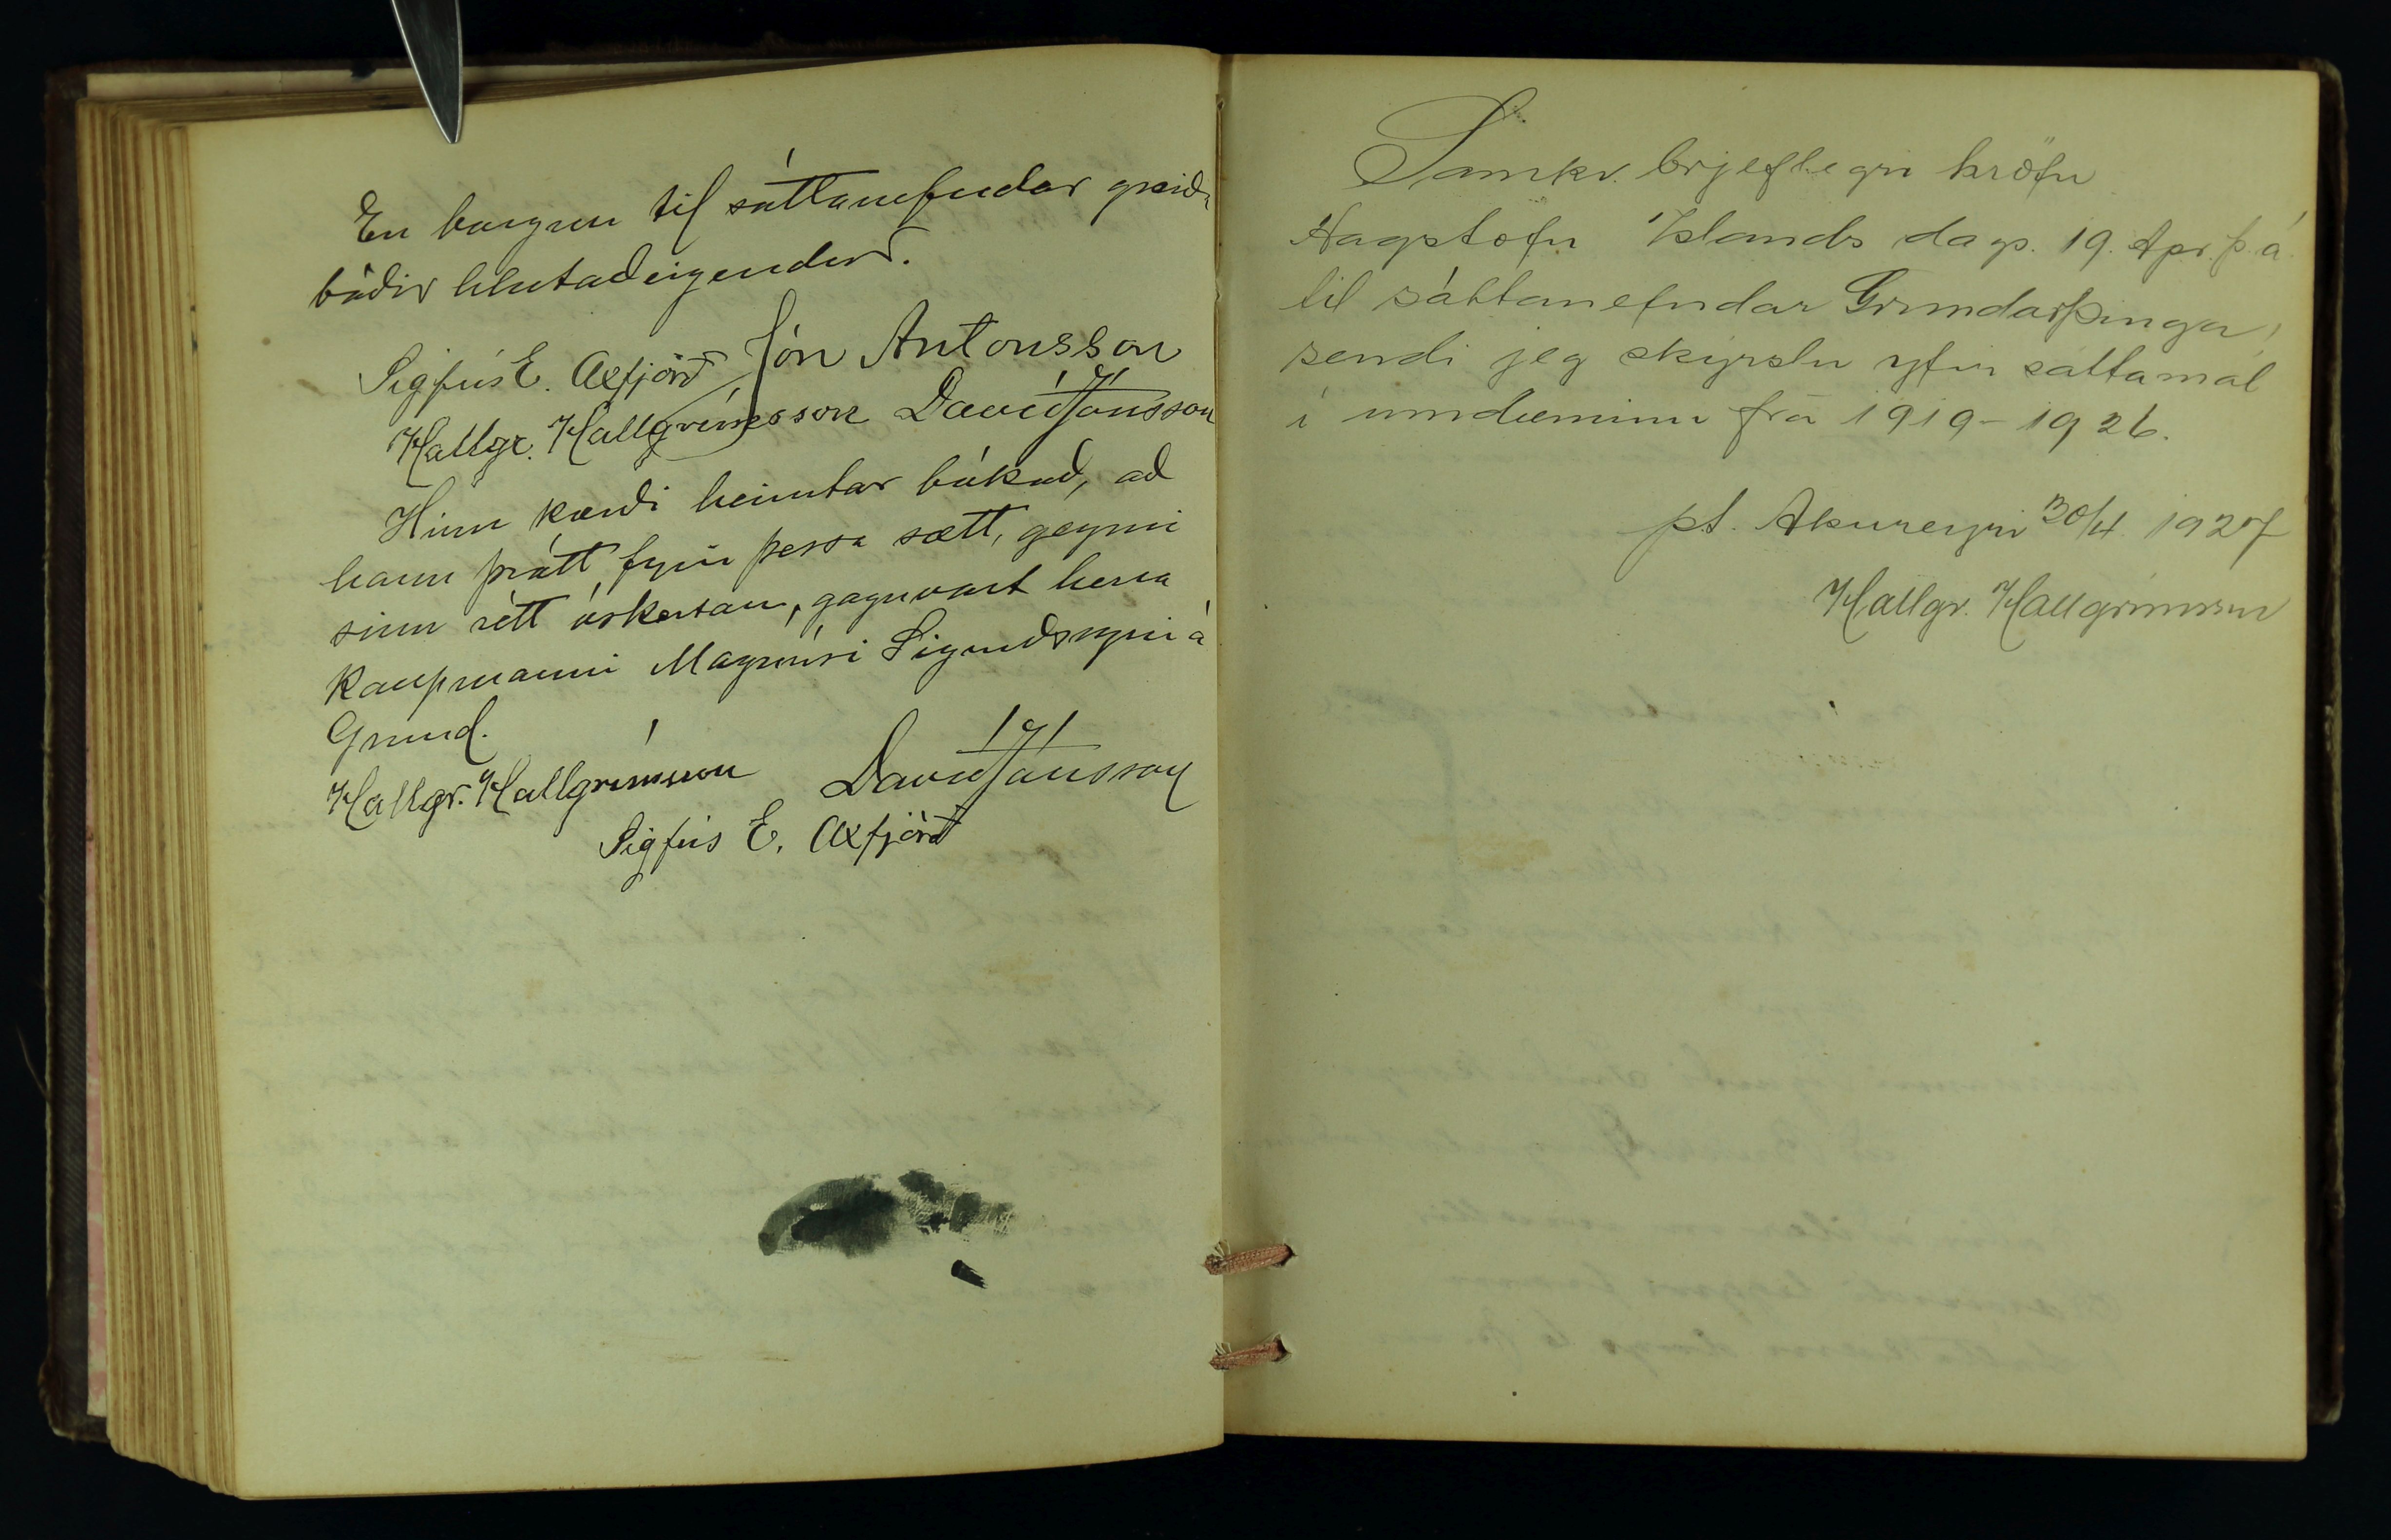 En borgun til sáttanefndar greiða
báðir hlutaðeigendur.
Sigfús E. Axfjörð Jón Antonsson
Hallgr. Hallgrímsson Davíð Jónsson
Hinn kærði heimtar bókað, að
hann þrátt fyrir þessa sætt, geymi
sinn rétt óskertan, gagnvart herra
kaupmanni Magnúsi Sigurðssyni á
Grund.
Hallgr. Hallgrímsson Davíð Jónsson
Sigfús E. Axfjörð
Samkv. brjeflegri kröfu
Hagstofu Islands dags. 19. Apr. þ. á.
til sáttanefndar Grundarþinga,
sendi jeg skýrslu yfir sáttamál
í umdæminu frá 1919-1926.
pt. Akureyri 30/4. 1927
Hallgr. Hallgrímsson